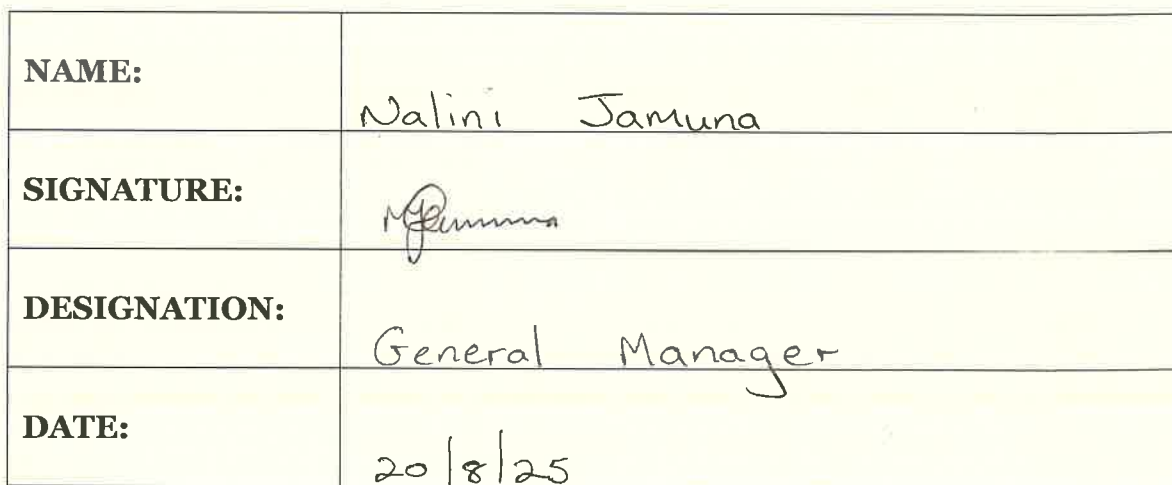 NAME:
Nalini Jamuna
SIGNATURE:
DESIGNATION:
General Manager
DATE:
20/8/25